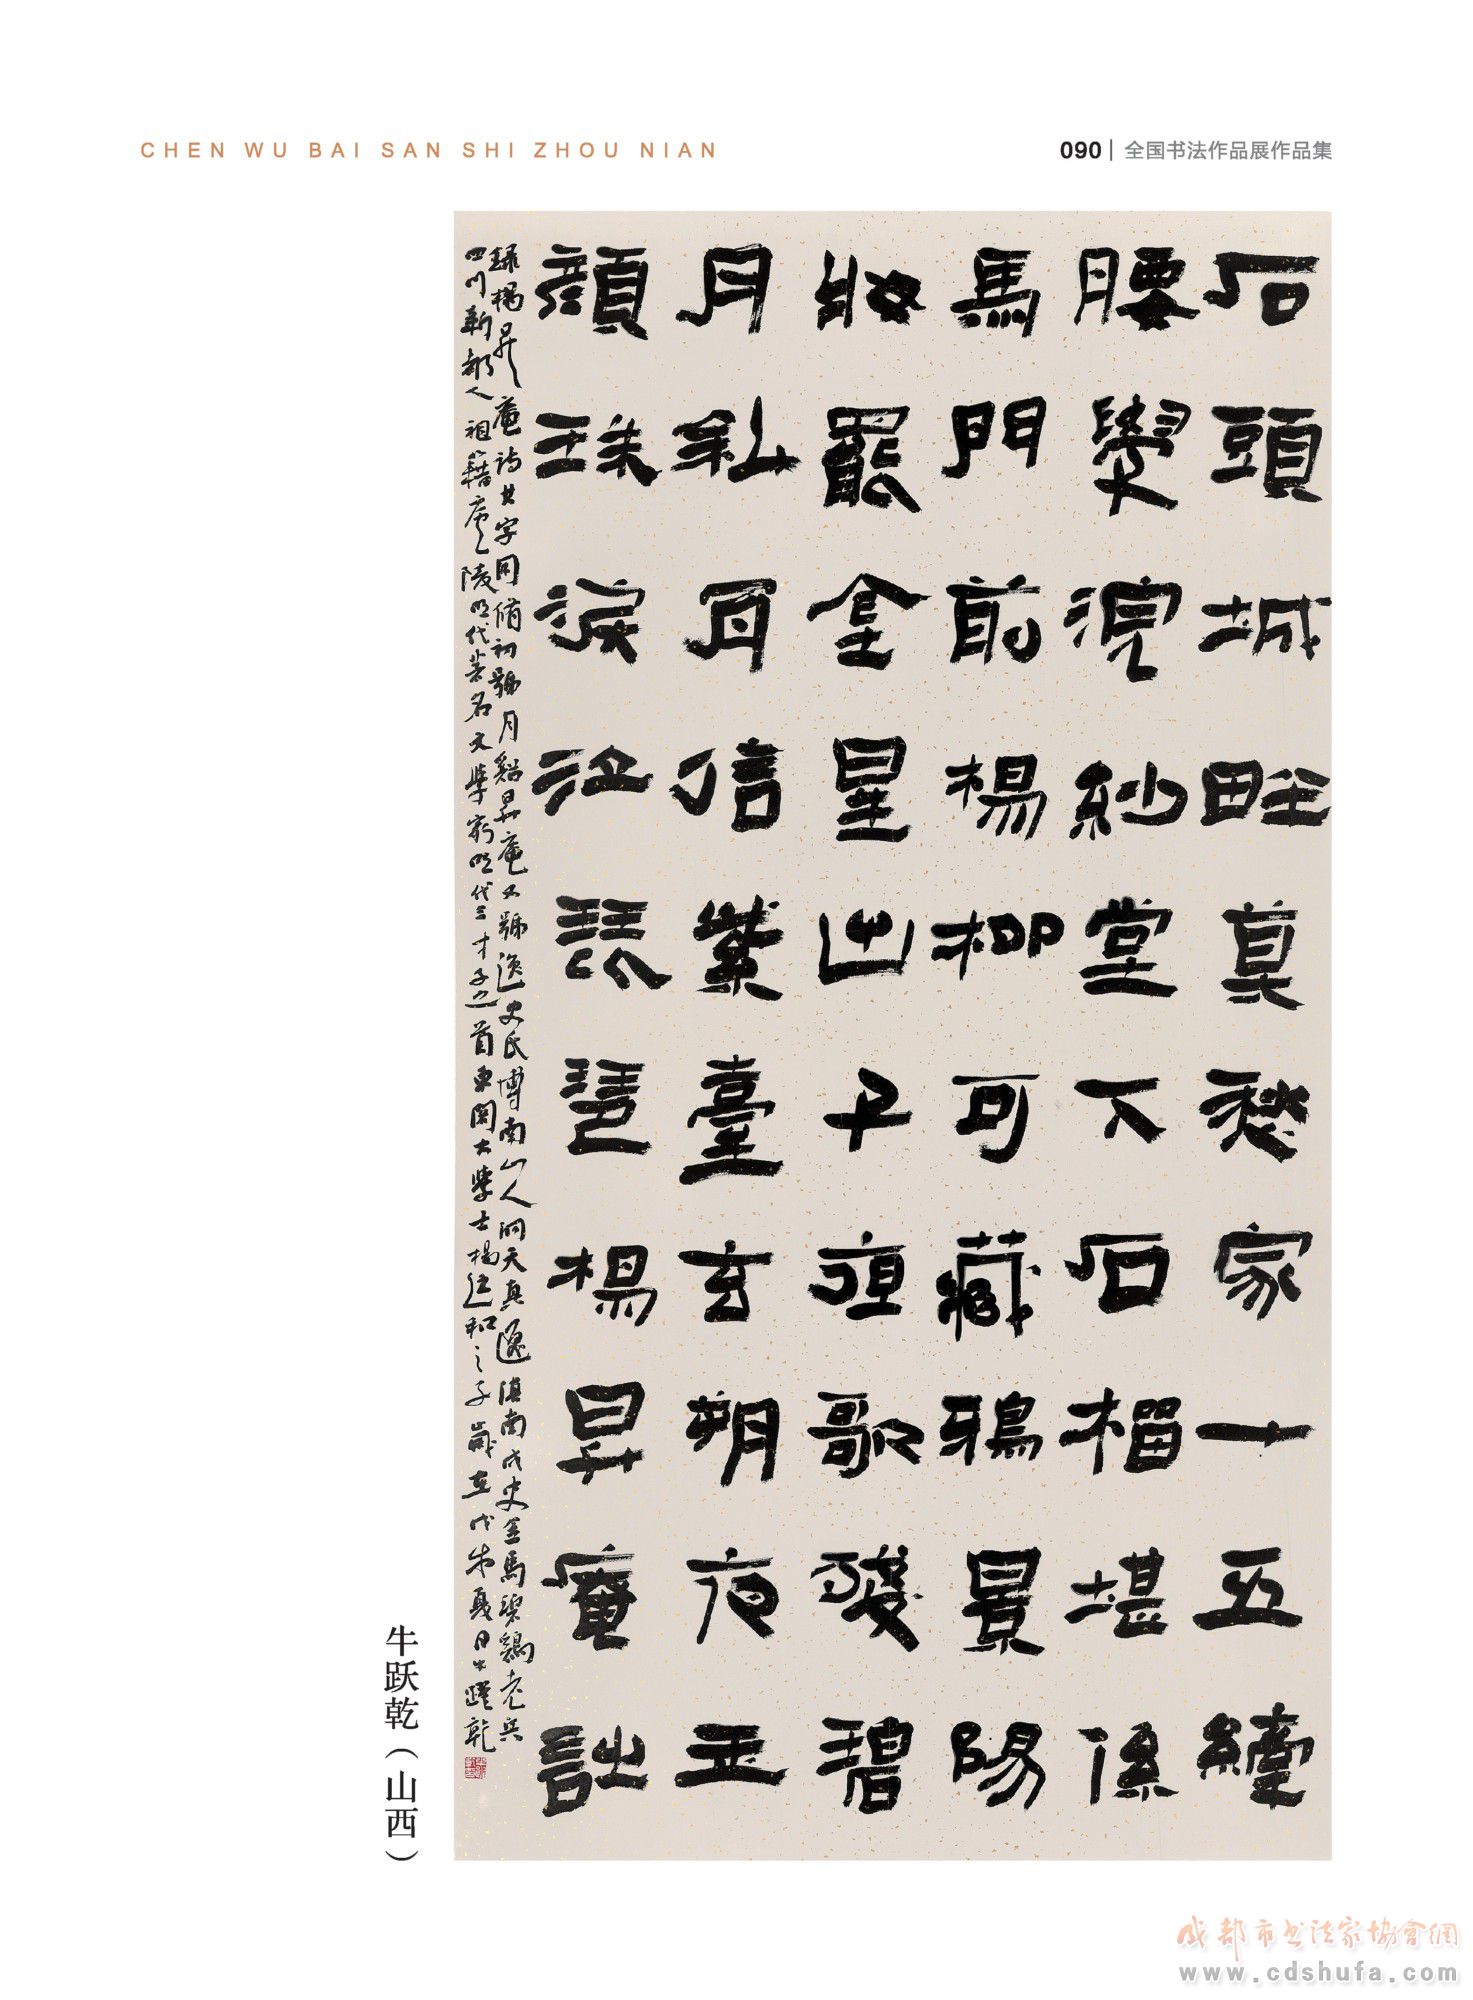 CHEN WU BAI SAN SHI ZHOU NIAN
090 | 全国书法作品展作品集
石頭城畔莫愁家十五纖
腰學浣紗堂下石榴堪係
馬門前楊柳可藏鴉景陽
妝罷金星出子夜歌殘碧
月私月信紫臺玄朔夜玉
顏珠淚泣琵琶楊昇庵詩
錄楊昇庵詩其字用脩初號月谿昇庵又號逸史氏博南山人洞天真逸滇南戍史金馬碧鷄老兵
四川新都人祖籍廬陵明代著名文學家明代三才子之首東閣大學士楊廷和之子歲在戊戌夏日牛躍乾
牛跃乾（山西）
成都市书法家協會網
www.cdshufa.com